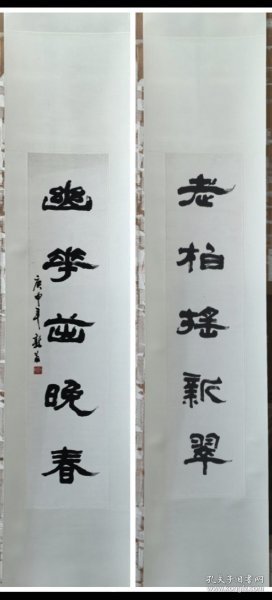 老柏摇新翠
幽花茁晚春
庚申年
孔夫子旧书网